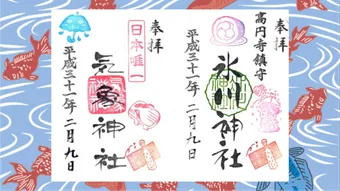 奉拝
高円寺鎮守
氷川神社
平成三十一年二月九日
奉拝
日本唯一
気象神社
平成三十一年二月九日